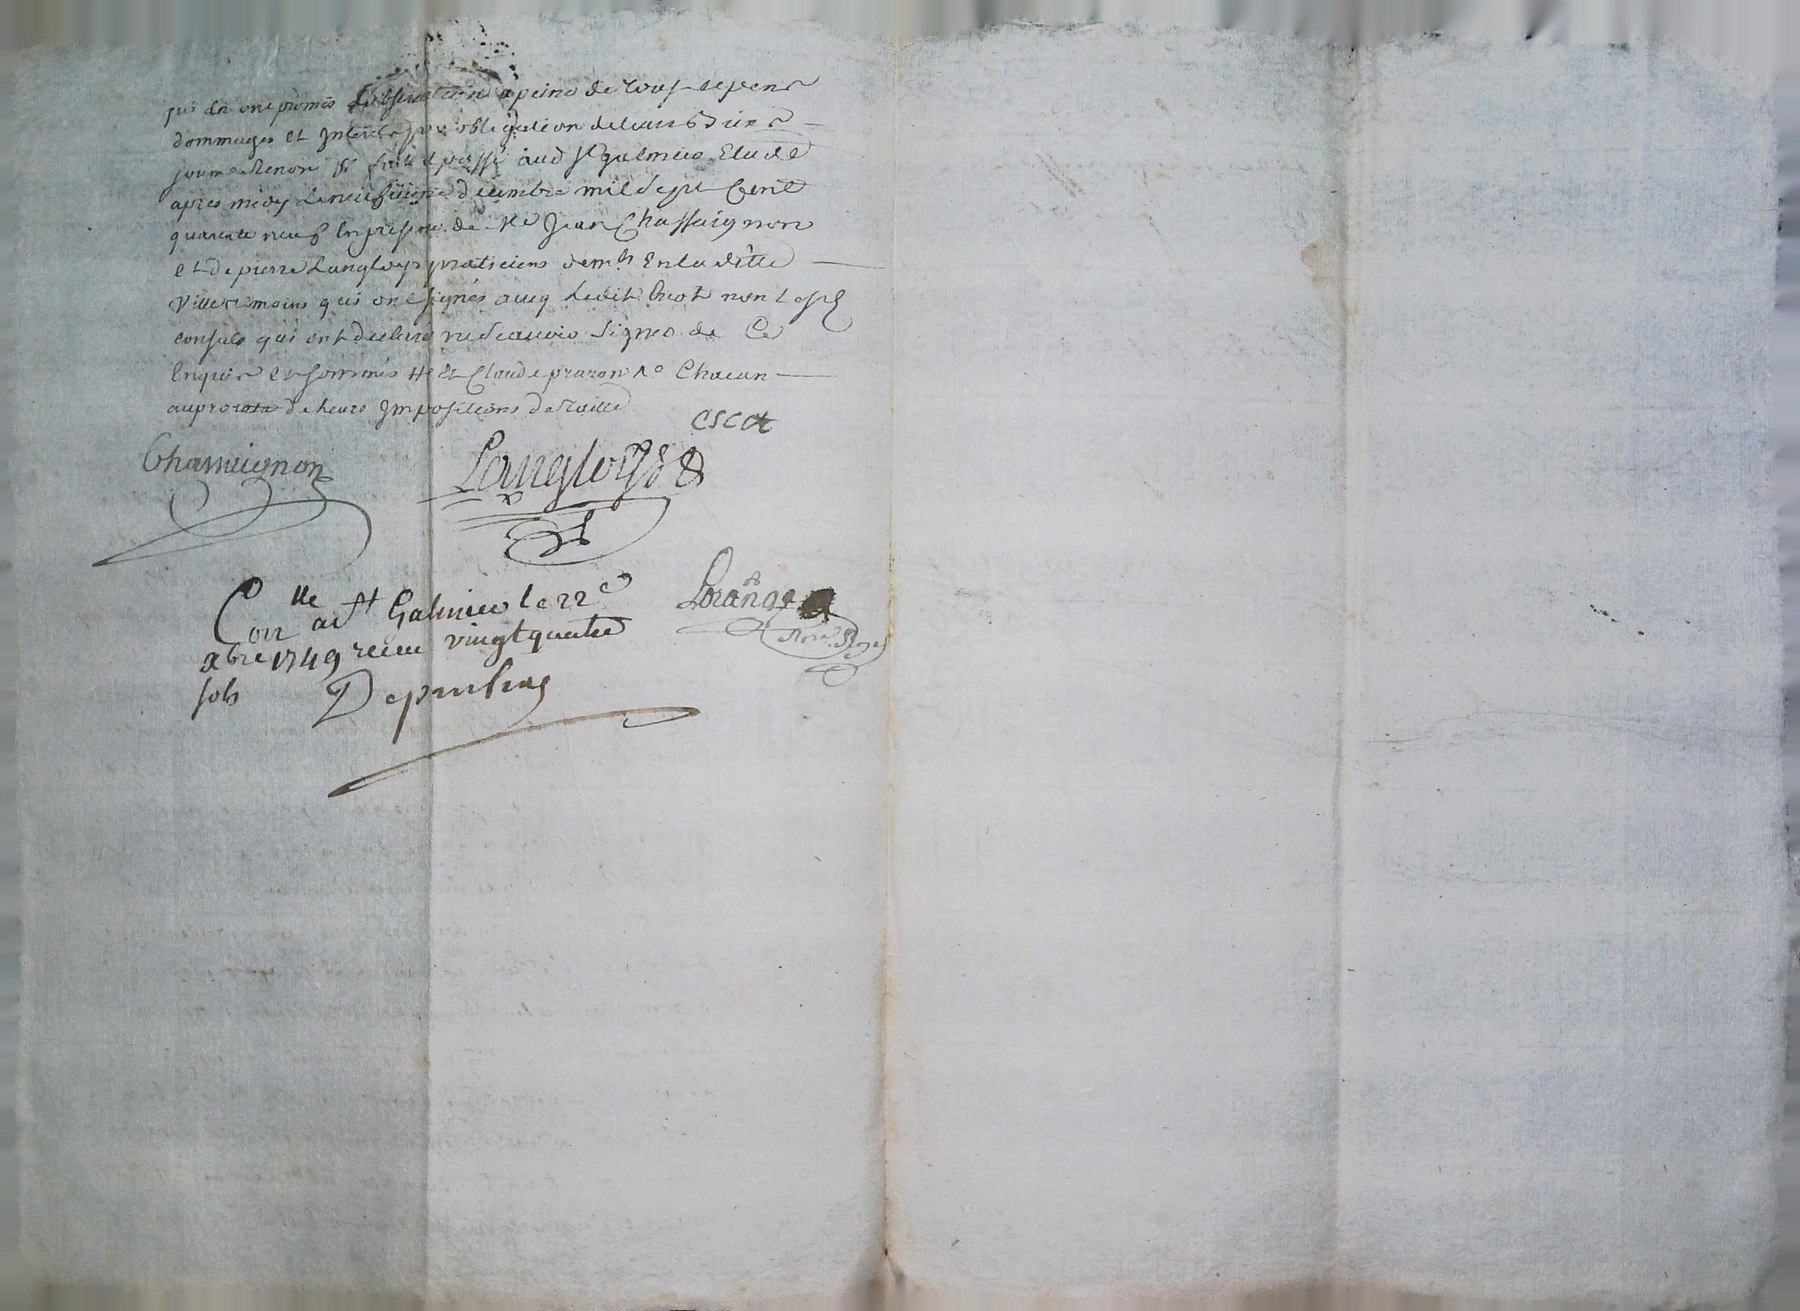 qui en ont promis L'observation apeine de tous depens
dommages et Interets par obligation de leurs Biens
soum. Renon. &c. fait et passé aud St galmier Etude
apres midy Le neufvieme decembre mil Sept Cent
quarante neuf En presence de Me Jean Chassaignon
et de pierre Langloys praticiens dem.ts En laditte
Ville temoins qui ont signés avec ledit non Lesd
consuls qui ont declaré ne scavoir signer de Ce
Enquis et sommés et Claude prazon Chacun
au prorata de leurs Impositions de Taille
Chassaignon
Langloys
Con.lle a St Galmier le 22e
xbre 1749 recu vingt quatre
sols
Lorange
Nore Royal